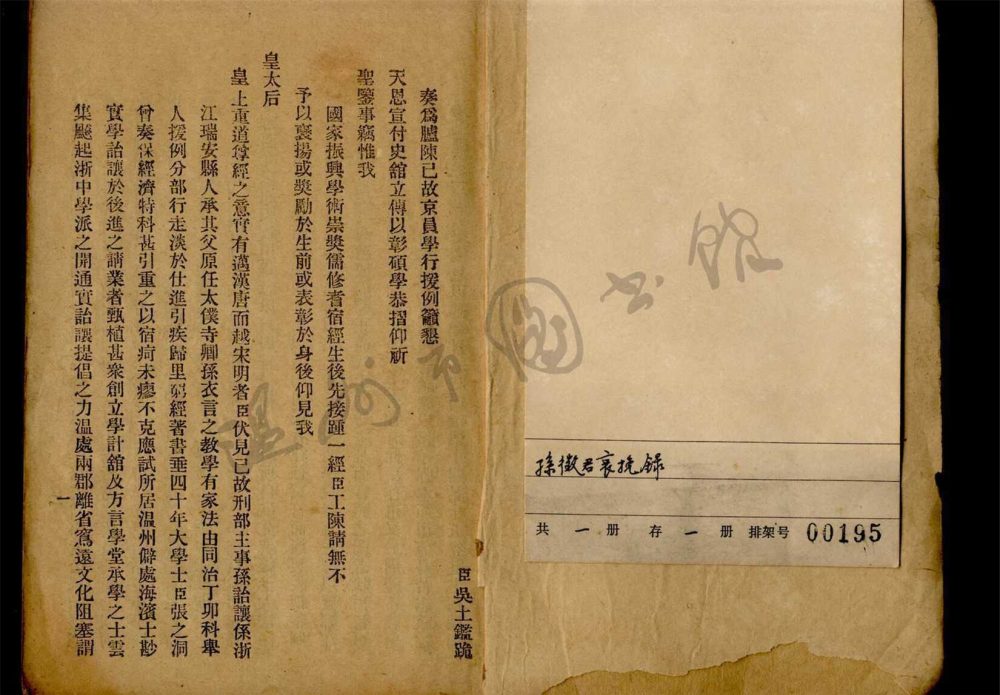 臣吳士鑑跪
奏爲臚陳已故京員學行援例籲懇
天恩宣付史舘立傳以彰碩學恭摺仰祈
聖鑒事竊惟我
國家振興學術崇奬儒修耆宿經生後先接踵一經臣工陳請無不
予以襃揚或奬勵於生前或表彰於身後仰見我
皇太后
皇上重道尊經之意實有邁漢唐而越宋明者臣伏見已故刑部主事孫詒讓係浙
江瑞安縣人承其父原任太僕寺卿孫衣言之教學有家法由同治丁卯科舉
人援例分部行走淡於仕進引疾歸里窮經著書垂四十年大學士臣張之洞
曾奏保經濟特科甚引重之以宿疴未瘳不克應試所居温州僻處海濱士尠
實學詒讓於後進之請業者甄植甚衆創立學計舘及方言學堂承學之士雲
集飈起浙中學派之開通實詒讓提倡之力温處兩郡離省窵遠文化阻塞謂
一
温州市圖书館
孫徵君哀挽錄
共 一 册 存 一 册 排架号 00195